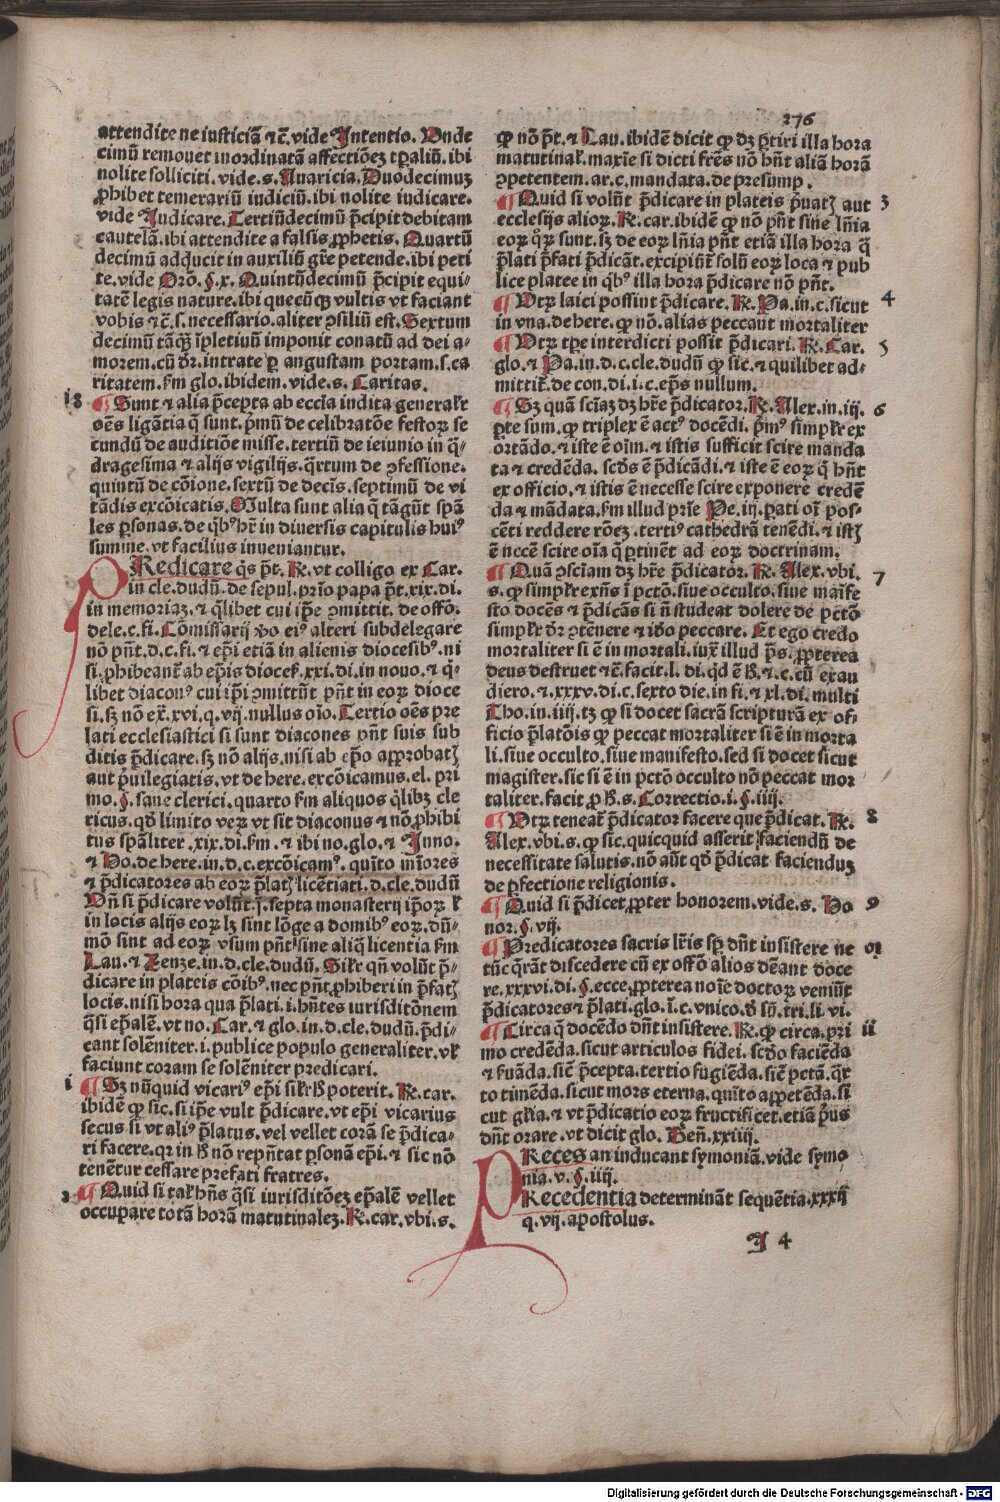 276
attendite ne iusticiã ⁊c̃. vide Intentio. Unde
cimũ remouet inordinatã affectiõez tꝑaliũ. ibi
nolite solliciti. vide. s. Auaricia. Duodecimuz
ꝓhibet temerariũ iudiciũ. ibi nolite iudicare.
vide Judicare. Tertiũdecimũ p̃cipit debitam
cautelã. ibi attendite a falsis ꝓphetis. Quartũ
decimũ adducit in auxiliũ gr̃e petende. ibi peti
te. vide Orõ. §. x. Quintũdecimũ p̃cipit equi-
tatẽ legis nature. ibi quecũqꝫ vultis vt faciant
vobis ⁊c̃. s. necessario. aliter ↄsiliũ est. Sextum
decimũ tãqꝫ ĩpletiuũ imponit conatũ ad dei a-
morem. cũ dr̃. intrate ꝑ angustam portam. s. ca
ritatem. ẜm glo. ibidem. vide. s. Caritas.
18 ¶ Sunt ⁊ alia p̃cepta ab eccĩa indita generałr
oẽs ligãtia q̃ sunt. p̃mũ de celibratõe festoꝝ se
cundũ de auditiõe misse. tertiũ de ieiunio in q̃-
dragesima ⁊ alijs vigilijs. q̃rtum de ↄfessione.
quintũ de cõione. sextũ de decis̃. septimũ de vi
tãdis excõicatis. Multa sunt alia q̃ tãgũt spã
les ꝑsonas. de qͥbꝰ hr̃ in diuersis capitulis huiꝰ
summe. vt facilius inueniantur.
PRedicare q̃s p̃t. ℞. vt colligo ex Car.
in cle. dudũ. de sepul. pr̃io papa p̃t. xix. di.
in memoriaz. ⁊ q̃libet cui ip̃e ↄmittit. de offõ.
dele. c. fi. Cõmissarij ꝟo eiꝰ alteri subdelegare
nõ pñt. d. c. fi. ⁊ ep̃i etiã in alienis diocesibꝰ. ni
si. ꝓhibeanť ab ep̃is dioceẜ. xxi. di. in nouo. ⁊ q̃-
libet diaconꝰ cui ip̃i ↄmittũt pñt in eoꝝ dioce
si. sꝫ nõ ex̃. xvi. q. vij. nullus oĩo. Tertio oẽs pre
lati ecclesiastici si sunt diacones pñt suis sub
ditis p̃dicare. sꝫ nõ alijs. nisi ab ep̃o apꝓbatꝭ
aut p̃uilegiatis. vt de here. excõicamus. el. pri
mo. §. sane clerici. quarto ẜm aliquos q̃libꝫ cle
ricus. qð limito veꝝ vt sit diaconus ⁊ nõ ꝓhibi
tus spãliter. xix. di. ẜm. ⁊ ibi no. glo. ⁊ Inno.
⁊ Ho. de here. in. d. c. excõicamꝰ. quĩto mĩores
⁊ p̃dicatores ab eoꝝ p̃latꝭ licẽtiati. d. cle. dudũ
Uñ si p̃dicare volũt. ĩ. septa monasterij ip̃oꝝ ł
in locis alijs eoꝝ lꝫ sint lõge a domibꝰ eoꝝ. dũ-
mõ sint ad eoꝝ vsum pñt sine aliq̃ licentia ẜm
Lau. ⁊ Zenze. in. d. cle. dudũ. Silr̃ qñ volũt p̃-
dicare in plateis cõibꝰ. nec pñt ꝓhiberi in p̃fatꝭ
locis. nisi hora qua p̃lati. i. hñtes iurisditõnem
q̃si ep̃alẽ. vt no. Car. ⁊ glo. in. d. cle. dudũ. p̃di-
cant solẽniter. i. publice populo generaliter. vł
faciunt coram se solẽniter predicari.
i ¶ Sꝫ nũquid vicariꝰ ep̃i silr̃ ħ poterit. ℞. car.
ibidẽ ꝙ sic. si ip̃e vult p̃dicare. vt ep̃i vicarius
secus si vt aliꝰ p̃latus. vel vellet corã se p̃dica-
ri facere. qꝛ in ħ nõ rep̃ñtat ꝑsonã ep̃i. ⁊ sic nõ
tenẽtur cessare prefati fratres.
2 ¶ Quid si tał hñs q̃si iurisditõez ep̃alẽ vellet
occupare totã horã matutinalez. ℞. car. vbi. s.
ꝙ nõ p̃t. ⁊ Lau. ibidẽ dicit ꝙ dꝫ ꝑtiri illa hora
matutinał. max̃ie si dicti fr̃es nõ hñt aliã horã
ↄpetentem. ar. c. mandata. de presump.
¶ Quid si volũt p̃dicare in plateis p̃uatꝭ aut 3
ecclesijs alioꝝ. ℞. car. ibidẽ ꝙ nõ pñt sine lñia
eoꝝ qͦꝝ sunt. sꝫ de eoꝝ lñia pñt etiã illa hora q̃
p̃lati p̃fati p̃dicãt. excipiũť solũ eoꝝ loca ⁊ pub
lice platee in qͥbꝰ illa hora p̃dicare nõ pñt.
¶ Utꝝ laici possint p̃dicare. ℞. Pa. in. c. sicut 4
in vna. de here. ꝙ nõ. alias peccant mortaliter
¶ Utꝝ tp̃e interdicti possit p̃dicari. ℞. Car. 5
glo. ⁊ Pa. in. d. c. cle. dudũ ꝙ sic. ⁊ quilibet ad-
mittiť. de con. di. i. c. ep̃s nullum.
¶ Sꝫ quã scĩaz dꝫ hr̃e p̃dicator. ℞. Alex. in. iij. 6
ꝑte sum. ꝙ triplex ẽ actꝰ docẽdi. p̃mꝰ simplr̃ ex
ortãdo. ⁊ iste ẽ oĩm. ⁊ istis sufficit scire manda
ta ⁊ credẽda. scðs ẽ p̃dicãdi. ⁊ iste ẽ eoꝝ q̃ hñt
ex officio. ⁊ istis ẽ necesse scire exponere credẽ
da ⁊ mãdata. ẜm illud pr̃ie Pe. iij. ꝑati oĩ pos-
cẽti reddere rõez. tertiꝰ cathedrã tenẽdi. ⁊ istꝭ
ẽ nccẽ scire oĩa q̃ ꝑtinẽt ad eoꝝ doctrinam.
¶ Quã ↄsciam dꝫ hr̃e p̃dicator. ℞. Alex. vbi. 7
s. ꝙ simplr̃ exñs ĩ pctõ. siue occulto. siue maĩfe
sto docẽs ⁊ p̃dicãs si ñ studeat dolere de pctõ
simplr̃ dr̃ ↄtẽnere ⁊ iðo peccare. Et ego credo
mortaliter si ẽ in mortali. iux̃ illud p̃s. ꝓpterea
deus destruet ⁊ c̃. facit. l. di. qͥd ẽ ħ. ⁊. c. cũ exau
diero. ⁊. xxxv. di. c. sexto die. in fi. ⁊ xl. di. multi
Tho. in. iiij. tꝫ ꝙ si docet sacrã scripturã ex of-
ficio p̃latõis ꝙ peccat mortaliter si ẽ in morta
li. siue occulto. siue manifesto. sed si docet sicut
magister. sic si ẽ in pctõ occulto nõ peccat mor
taliter. facit ꝓ ħ. s. Correctio. i. §. iiij.
¶ Utꝝ teneať p̃dicator facere que p̃dicat. ℞. 8
Alex. vbi. s. ꝙ sic. quicquid asserit faciendũ de
necessitate salutis. nõ aũt qð p̃dicat facienduz
de ꝑfectione religionis.
¶ Quid si p̃dicet ꝓpter honorem. vide. s. Ho 9
nor. §. vij.
¶ Predicatores sacris lr̃is sꝑ dñt insistere ne 01
tũc q̃rãt discedere cũ ex offõ alios dẽant doce
re. xxxvi. di. §. ecce. ꝓpterea noĩe doctoꝝ veniũt
p̃dicatores ⁊ p̃lati. glo. ĩ. c. vnico. ð sũ. tri. li. vi.
¶ Circa q̃ docẽdo dñt insistere. ℞. ꝙ circa. pri ii
mo credẽda. sicut articulos fidei. scðo faciẽda
⁊ ẜuãda. siẽ p̃cepta. tertio fugiẽda. siẽ pctã. q̃r
to timẽda. sicut mors eterna. quĩto appetẽda. si
cut gl̃ia. ⁊ vt p̃dicatio eoꝝ fructificet. etiã p̃us
dñt orare. vt dicit glo. Geñ. xxiiij.
PReces an inducant symoniã. vide symo
nia. v. §. iiij.
Recedentia determinãt sequẽtia. xxxij
q. vij. apostolus.
A 4
Digitalisierung gefördert durch die Deutsche Forschungsgemeinschaft - DFG